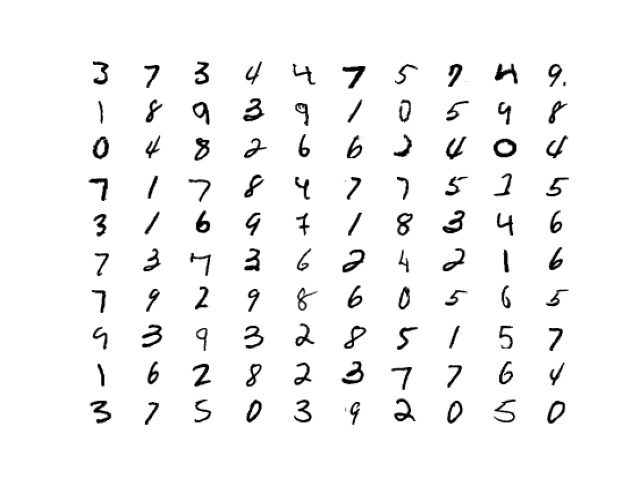 3 7 3 4 4 7 5 7 4 9.
1 8 9 3 9 1 0 5 9 8
0 4 8 2 6 6 2 4 0 4
7 1 7 8 4 7 7 5 1 5
3 1 6 9 7 1 8 3 4 6
7 3 7 3 6 2 4 2 1 6
7 9 2 9 8 6 0 5 6 5
9 3 9 3 2 8 5 1 5 7
1 6 2 8 2 3 7 7 6 4
3 7 5 0 3 9 2 0 5 0